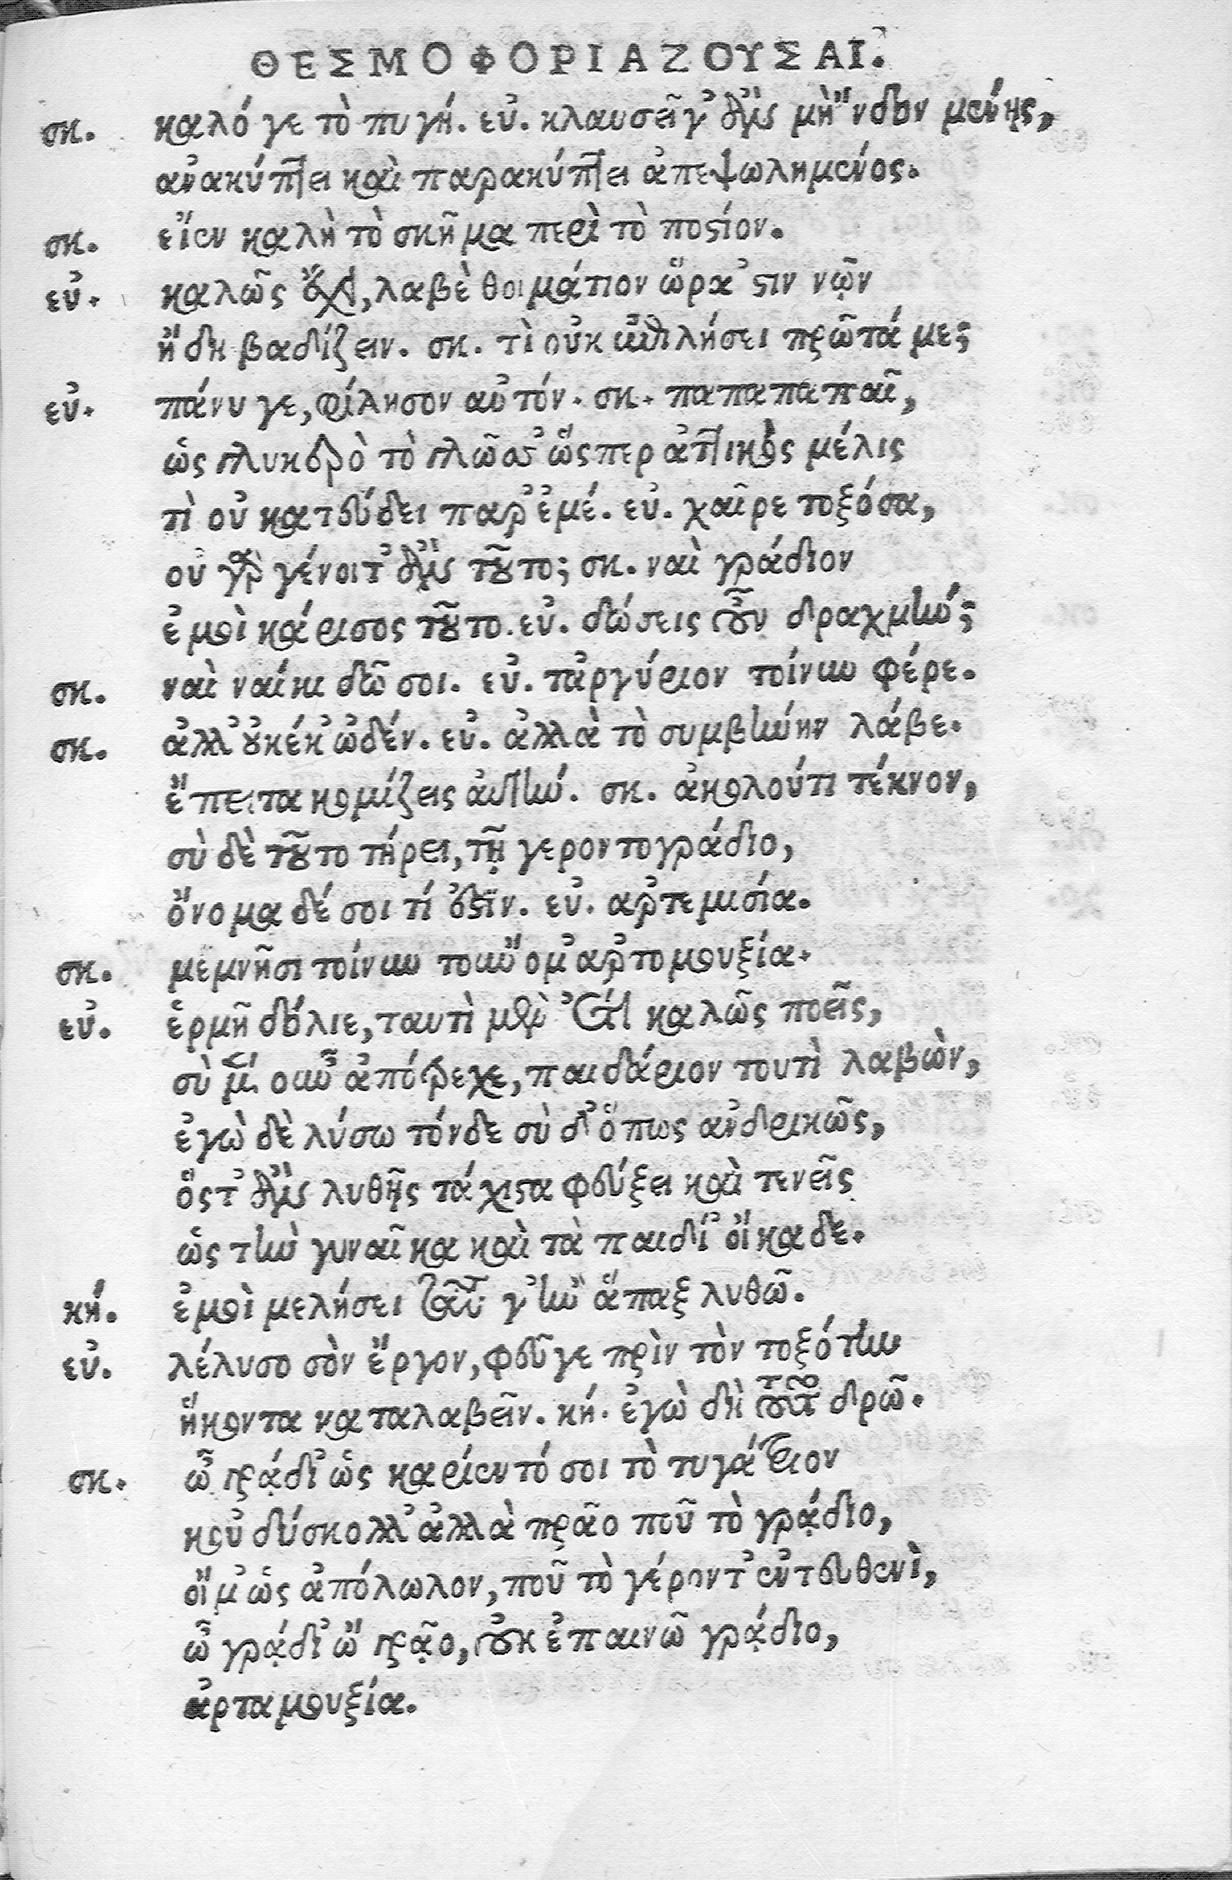 ΘΕΣΜΟΦΟΡΙΑΖΟΥΣΑΙ.
σκ. καλό γε τὸ πυγή. εὐ. κλαυσεῖ γ' ἂν μὴ 'νδον μένῃς,
ἀνακύπτει καὶ παρακύπτει ἀπεψωλημένος.
σκ. εἶεν καλὴ τὸ σκῆμα περὶ τὸ ποστίον.
εὐ. καλῶς ἔχει, λαβὲ θοιμάτιον ὥρα 'στιν νῷν
ἤδη βαδίζειν. σκ. τὶ οὐκ ἐπιλήσει πρῶτά με;
εὐ. πάνυ γε, φίλησον αὐτόν. σκ. παπαπαπαῖ,
ὡς γλυκερὸ τὸ γλῶσσ' ὥσπερ ἀττικὸς μέλις
τὶ οὐ κατεύδει παρ' ἐμέ. εὐ. χαῖρε τοξότα,
οὐ γὰρ γένοιτ' ἂν τοῦτο; σκ. ναὶ γράδιον
ἐμοὶ κάρισος τοῦτο. εὐ. δώσεις οὖν δραχμήν;
σκ. ναὶ ναίκι δῶ σοι. εὐ. τἀργύριον τοίνυν φέρε.
σκ. ἀλλ' οὐκέκ' ὠδέν. εὐ. ἀλλὰ τὸ συμβήνην λάβε.
ἔπειτα κομίζεις αὐτήν. σκ. ἀκολούτι τέκνον,
σὺ δὲ τοῦτο τήρει, τῇ γεροντογράδιο,
ὄνομα δέ σοι τί ἐστίν. εὐ. ἀρτεμισία.
σκ. μεμνῆσι τοίνυν τοὔνομ' ἀρτομουξία.
εὐ. ἑρμῆ δόλιε, ταυτὶ μὲν ἔτι καλῶς ποεῖς,
σὺ μὲν οὖν ἀπότρεχε, παιδάριον τουτὶ λαβὼν,
ἐγὼ δὲ λύσω τόνδε σὺ δ' ὅπως ἀνδρικῶς,
ὅστ' ἂν λυθῇς τάχιστα φεύξει καὶ τενεῖς
ὡς τὴν γυναῖκα καὶ τὰ παιδί' οἴκαδε.
κή. ἐμοὶ μελήσει ταῦτά γ' ἢν ἅπαξ λυθῶ.
εὐ. λέλυσο σὸν ἔργον, φεῦγε πρὶν τὸν τοξότην
ἥκοντα καταλαβεῖν. κή. ἐγὼ δὴ τοῦτο δρῶ.
σκ. ὦ γρᾴδι' ὡς καρίεντό σοι τὸ τυγάτριον
κοὐ δύσκολλ' ἀλλὰ πρᾶο ποῦ τὸ γρᾴδιο,
οἴμ' ὡς ἀπόλωλον, ποῦ τὸ γέροντ' ἐντευθενὶ,
ὦ γρᾴδι' ὢ γρᾷο, οὐκ ἐπαινῶ γρᾴδιο,
ἀρταμουξία.